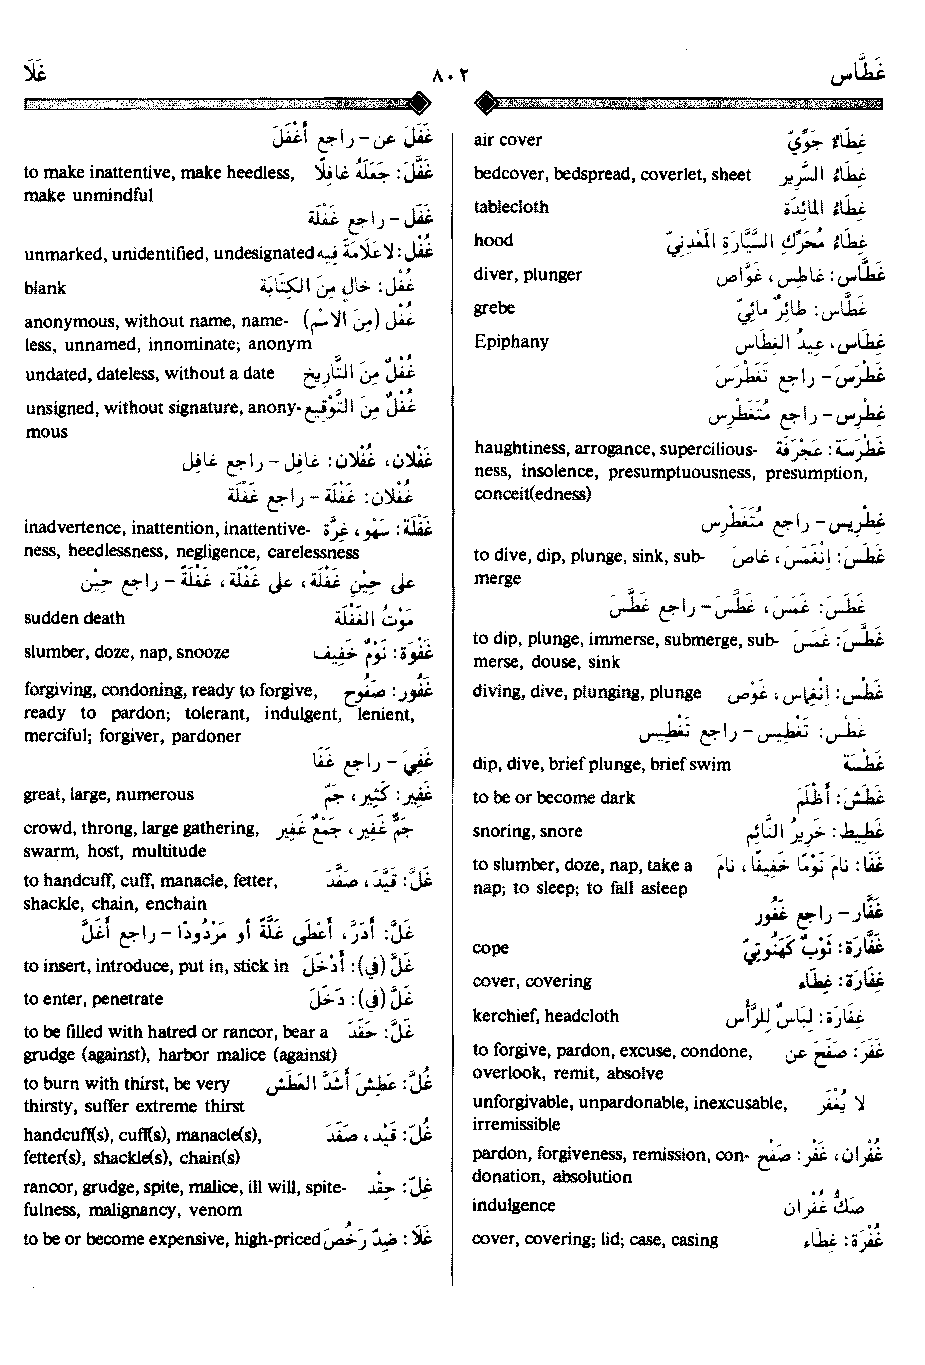 غَطَّاس ٨٠٢ غَلَا
air cover غِطَاءٌ جَوِّيّ
bedcover, bedspread, coverlet, sheet غِطَاءُ السَّرِير
tablecloth غِطَاءُ المَائِدَة
hood غِطَاءُ مُحَرِّكِ السَّيَّارَةِ المَعْدِنِيّ
diver, plunger غَطَّاس: غَاطِس، غَوَّاص
grebe غَطَّاس: طَائِرٌ مَائِيّ
Epiphany غِطَاس، عِيدُ الغِطَاس
غَطْرَسَ - راجع تَغَطْرَسَ
غِطْرِس - راجع مُتَغَطْرِس
haughtiness, arrogance, supercilious- غَطْرَسَة: عَجْرَفَة
ness, insolence, presumptuousness, presumption,
conceit(edness)
غِطْرِيس - راجع مُتَغَطْرِس
to dive, dip, plunge, sink, sub- غَطَسَ: اِنْغَمَسَ، غَاصَ
merge
غَطَسَ: غَمَسَ، غَطَّسَ - راجع غَطَّسَ
to dip, plunge, immerse, submerge, sub- غَطَّسَ: غَمَسَ
merse, douse, sink
diving, dive, plunging, plunge غَطْس: اِنْغِمَاس، غَوْص
غَطْس: تَغْطِيس - راجع تَغْطِيس
dip, dive, brief plunge, brief swim غَطْسَة
to be or become dark غَطَشَ: أَظْلَمَ
snoring, snore غَطِيط: خَرِيرُ النَّائِم
to slumber, doze, nap, take a غَفَا: نَامَ نَوْمًا خَفِيفًا، نَامَ
nap; to sleep; to fall asleep
غَفَّار - راجع غَفُور
cope غَفَّارَة: ثَوْبٌ كَهَنُوتِيّ
cover, covering غِفَارَة: غِطَاء
kerchief, headcloth غِفَارَة: لِبَاسٌ لِلرَّأْس
to forgive, pardon, excuse, condone, غَفَرَ: صَفَحَ عن
overlook, remit, absolve
unforgivable, unpardonable, inexcusable, لا يُغْفَر
irremissible
pardon, forgiveness, remission, con- غُفْرَان، غَفْر: صَفْح
donation, absolution
indulgence صَكُّ غُفْرَان
cover, covering; lid; case, casing غُفْرَة: غِطَاء
غَفَلَ عن - راجع أَغْفَلَ
to make inattentive, make heedless, غَفَّلَ: جَعَلَهُ غَافِلًا
make unmindful
غَفَل - راجع غَفْلَة
unmarked, unidentified, undesignated غُفْل: لا عَلَامَةَ فيه
blank غُفْل: خَالٍ مِنَ الكِتَابَة
anonymous, without name, name- غُفْل (مِنَ الاسْم)
less, unnamed, innominate; anonym
undated, dateless, without a date غُفْلٌ مِنَ التَّارِيخ
unsigned, without signature, anony- غُفْلٌ مِنَ التَّوْقِيع
mous
غَفْلَان، غُفْلَان: غَافِل - راجع غَافِل
غُفْلَان: غَفْلَة - راجع غَفْلَة
inadvertence, inattention, inattentive- غَفْلَة: سَهْو، غِرَّة
ness, heedlessness, negligence, carelessness
على حِيْنِ غَفْلَة، على غَفْلَة، غَفْلَةً - راجع حِيْن
sudden death مَوْتُ الغَفْلَة
slumber, doze, nap, snooze غَفْوَة: نَوْمٌ خَفِيف
forgiving, condoning, ready to forgive, غَفُور: صَفُوح
ready to pardon; tolerant, indulgent, lenient,
merciful; forgiver, pardoner
غَفِيَ - راجع غَفَا
great, large, numerous غَفِير: كَثِير، جَمّ
crowd, throng, large gathering, جَمٌّ غَفِير، جَمْعٌ غَفِير
swarm, host, multitude
to handcuff, cuff, manacle, fetter, غَلَّ: قَيَّدَ، صَفَّدَ
shackle, chain, enchain
غَلَّ: أَدَرَّ، أَعْطَى غَلَّةً أو مَرْدُودًا - راجع أَغَلَّ
to insert, introduce, put in, stick in غَلَّ (في): أَدْخَلَ
to enter, penetrate غَلَّ (في): دَخَلَ
to be filled with hatred or rancor, bear a غَلَّ: حَقَدَ
grudge (against), harbor malice (against)
to burn with thirst, be very غُلَّ: عَطِشَ أَشَدَّ العَطَش
thirsty, suffer extreme thirst
handcuff(s), cuff(s), manacle(s), غُلّ: قَيْد، صَفَد
fetter(s), shackle(s), chain(s)
rancor, grudge, spite, malice, ill will, spite- غِلّ: حِقْد
fulness, malignancy, venom
to be or become expensive, high-priced غَلَا: ضِدّ رَخُصَ